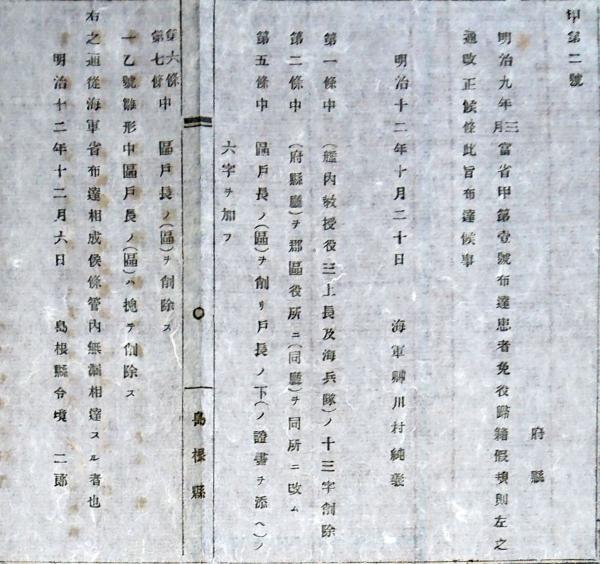 甲第二號
府縣
明治九年三月當省甲第壹號布達患者免役歸籍假規則左之
通改正候條此旨布達候事
明治十二年十月二十日 海軍卿川村純義
第一條中 (艦內敎授役三上長及海兵隊)ノ十三字削除
第二條中 (府縣廳)ヲ郡區役所ニ(同廳)ヲ同所ニ改ム
第五條中 區戶長ノ(區)ヲ削リ戶長ノ下(ノ證書ヲ添ヘ)ノ
六字ヲ加フ
島根縣
第六條中
第七條 區戶長ノ(區)ヲ削除ス
十乙號雛形中區戶長ノ(區)ハ摠テ削除ス
右之通從海軍省布達相成候條管內無漏相達スル者也
明治十二年十二月六日 島根縣令境二郞